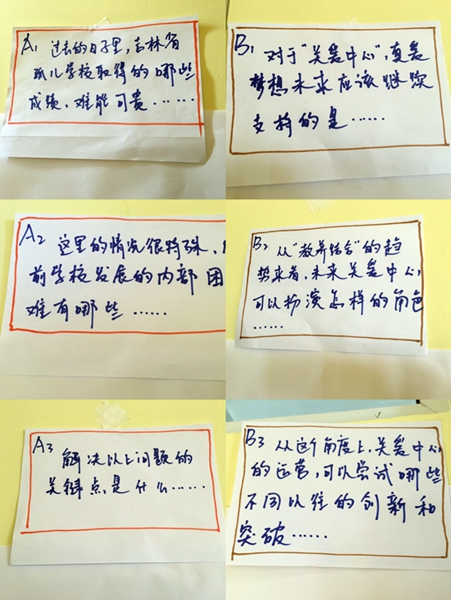 A1 过去的日子里，吉林省
孤儿学校取得的哪些
成绩，难能可贵……
B1 对于“关爱中心”，真爱
梦想未来应该继续
支持的是……
A2 这里的情况很特殊，
前学校发展的内部困
难有哪些……
B2 从“教养结合”的趋
势来看，未来关爱中心，
可以扮演怎样的角色
……
A3 解决以上问题的
关键点是什么……
B3 从这个角度上，关爱中心
的运营，可以尝试哪些
不同以往的创新和
突破……